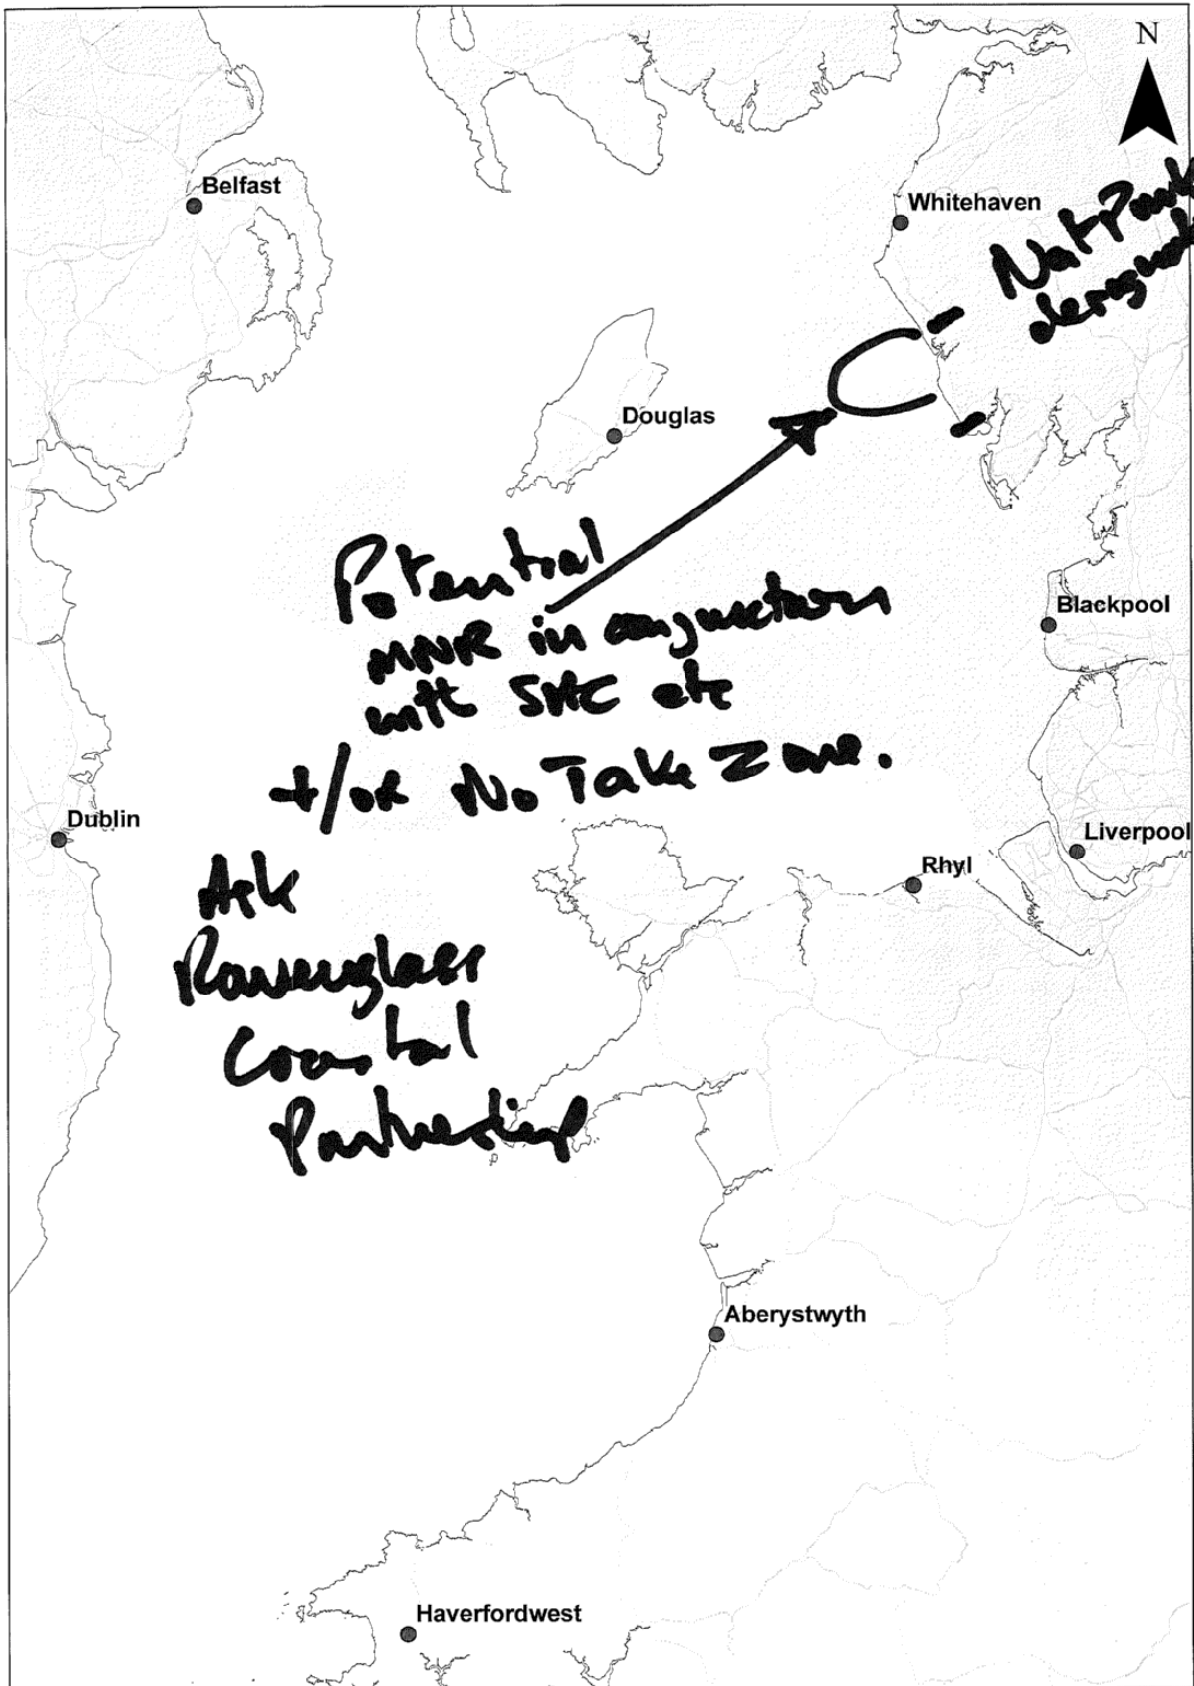 N
Belfast
Whitehaven
Nat Park
Douglas
Potential
MNR in conjunction
with SAC etc
+/or No Take Zone.
Blackpool
Dublin
Liverpool
Rhyl
Ask
Ravenglass
Coastal
Partnership
Aberystwyth
Haverfordwest